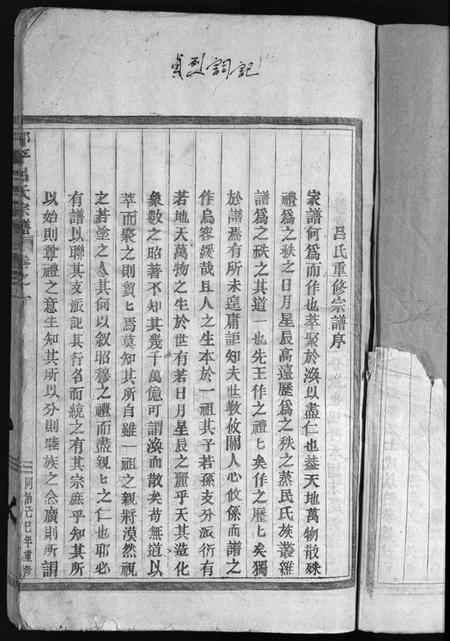 貞烈詞記
呂氏重修宗譜序
家譜何為而作也萃聚於渙以盡仁也蓋天地萬物散殊
禮為之秩之日月星辰高遠歷為之秩之蒸民氏族叢雜
譜為之秩之其道一也先王作之禮匕矣作之歷匕矣獨
於譜焉有所未遑庸詎知夫世教攸關人心攸係而譜之
作烏容緩哉且人之生本於一祖其子若孫支分派衍有
若地天萬物之生於世有若日月星辰之麗乎天其造化
象數之昭著不知其幾千萬億可謂渙而散矣苟無道以
萃而聚之則貿匕焉莫知其所自雖一祖之親將漠然視
之若塗之人其何以叙昭穆之禮而盡親匕之仁也耶必
有譜以聯其支派記其行名而統之有其宗庶乎知其所
以始則尊禮之意生知其所以分則睦族之念廣則所謂
平呂氏宗譜
卷之
同治己巳年重修